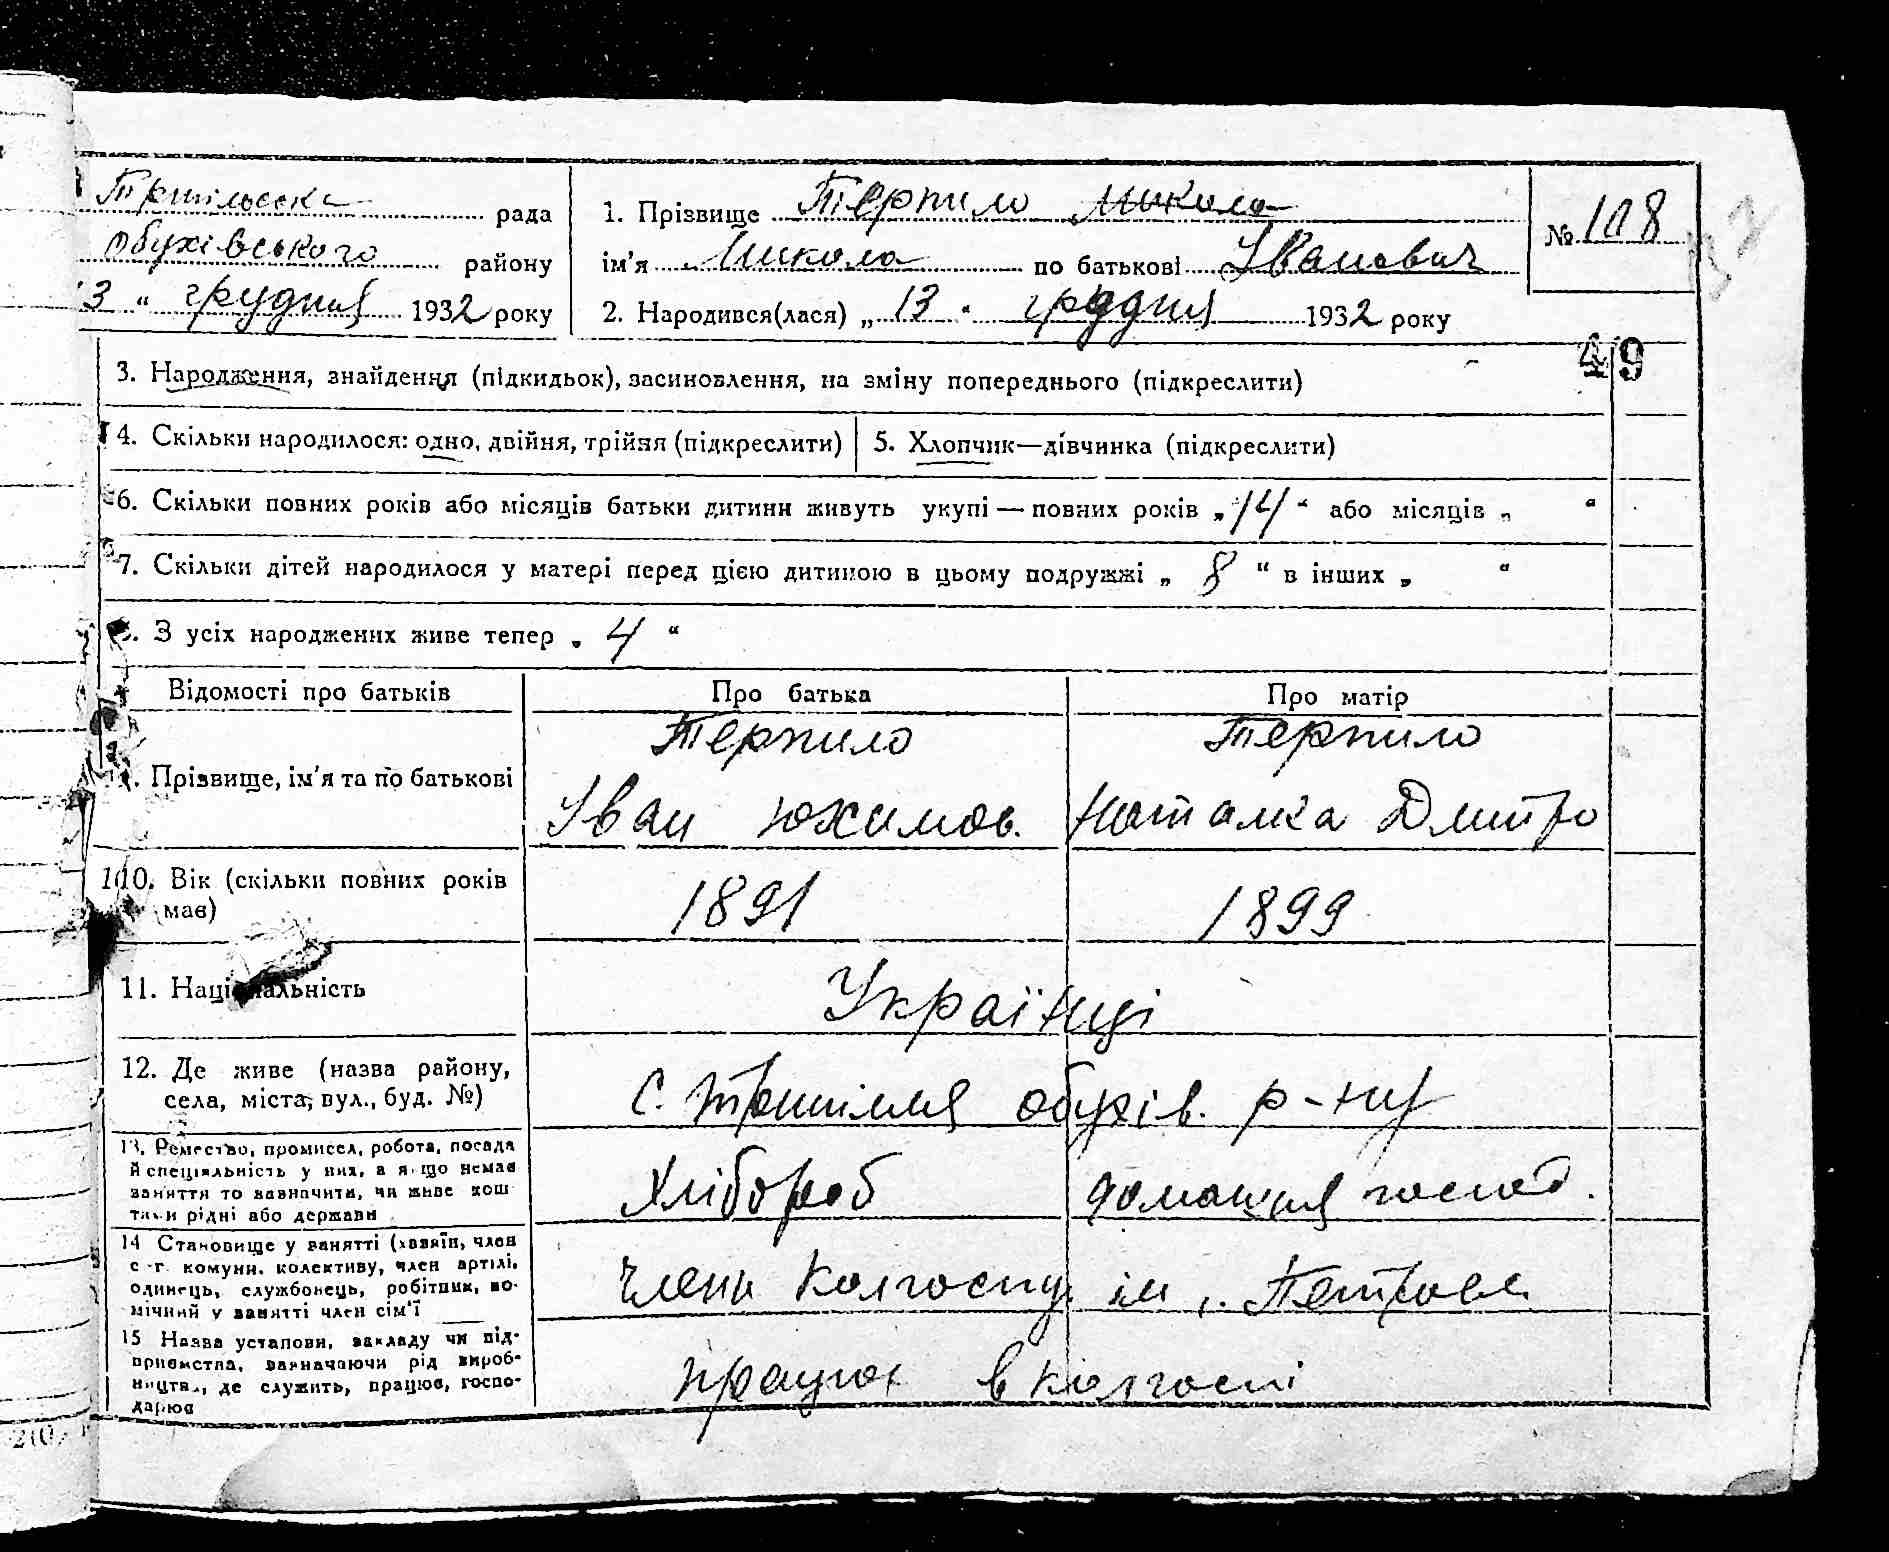 Трипільська рада
Обухівського району
13 " грудня 1932 року
1. Прізвище Терпило Микола
ім'я Микола по батькові Іванович
2. Народився(лася) „ 13 " грудня 1932 року
№ 108
49
3. Народження, знайдення (підкидьок), засиновлення, на зміну попереднього (підкреслити)
4. Скільки народилося: одно, двійня, трійня (підкреслити)
5. Хлопчик—дівчинка (підкреслити)
6. Скільки повних років або місяців батьки дитини живуть укупі — повних років „ 14 " або місяців „ "
7. Скільки дітей народилося у матері перед цією дитиною в цьому подружжі „ 8 " в інших „ "
8. З усіх народжених живе тепер „ 4 "
Відомості про батьків
Про батька
Про матір
Прізвище, ім'я та по батькові
Терпило
Іван Юхимов.
Терпило
Наталка Дмитро
10. Вік (скільки повних років
має)
1891
1899
11. Національність
Українці
12. Де живе (назва району,
села, міста, вул., буд. №)
с. Трипілля Обухів. р-ну
13. Ремество, промисел, робота, посада
й спеціяльність у них, а якщо немає
заняття то зазначити, чи живе кош
тами рідні або держави
Хлібороб
домашня господ.
14 Становище у занятті (хазяїн, член
с.-г. комуни, колективу, член артілі,
одинець, службовець, робітник, по-
мічний у занятті член сім'ї
Члени колгоспу ім. Петровс.
15 Назва установи, закладу чи під-
приємства, зазначаючи рід вироб-
ництва, де служить, працює, госпо-
дарює
працює в колгоспі